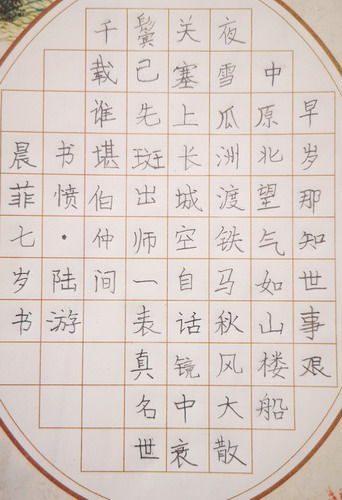 早岁那知世事艰
中原北望气如山楼船
夜雪瓜洲渡铁马秋风大散
关塞上长城空自话镜中衰
鬓己先斑出师一表真名世
千载谁堪伯仲间
书愤·陆游
晨菲七岁书